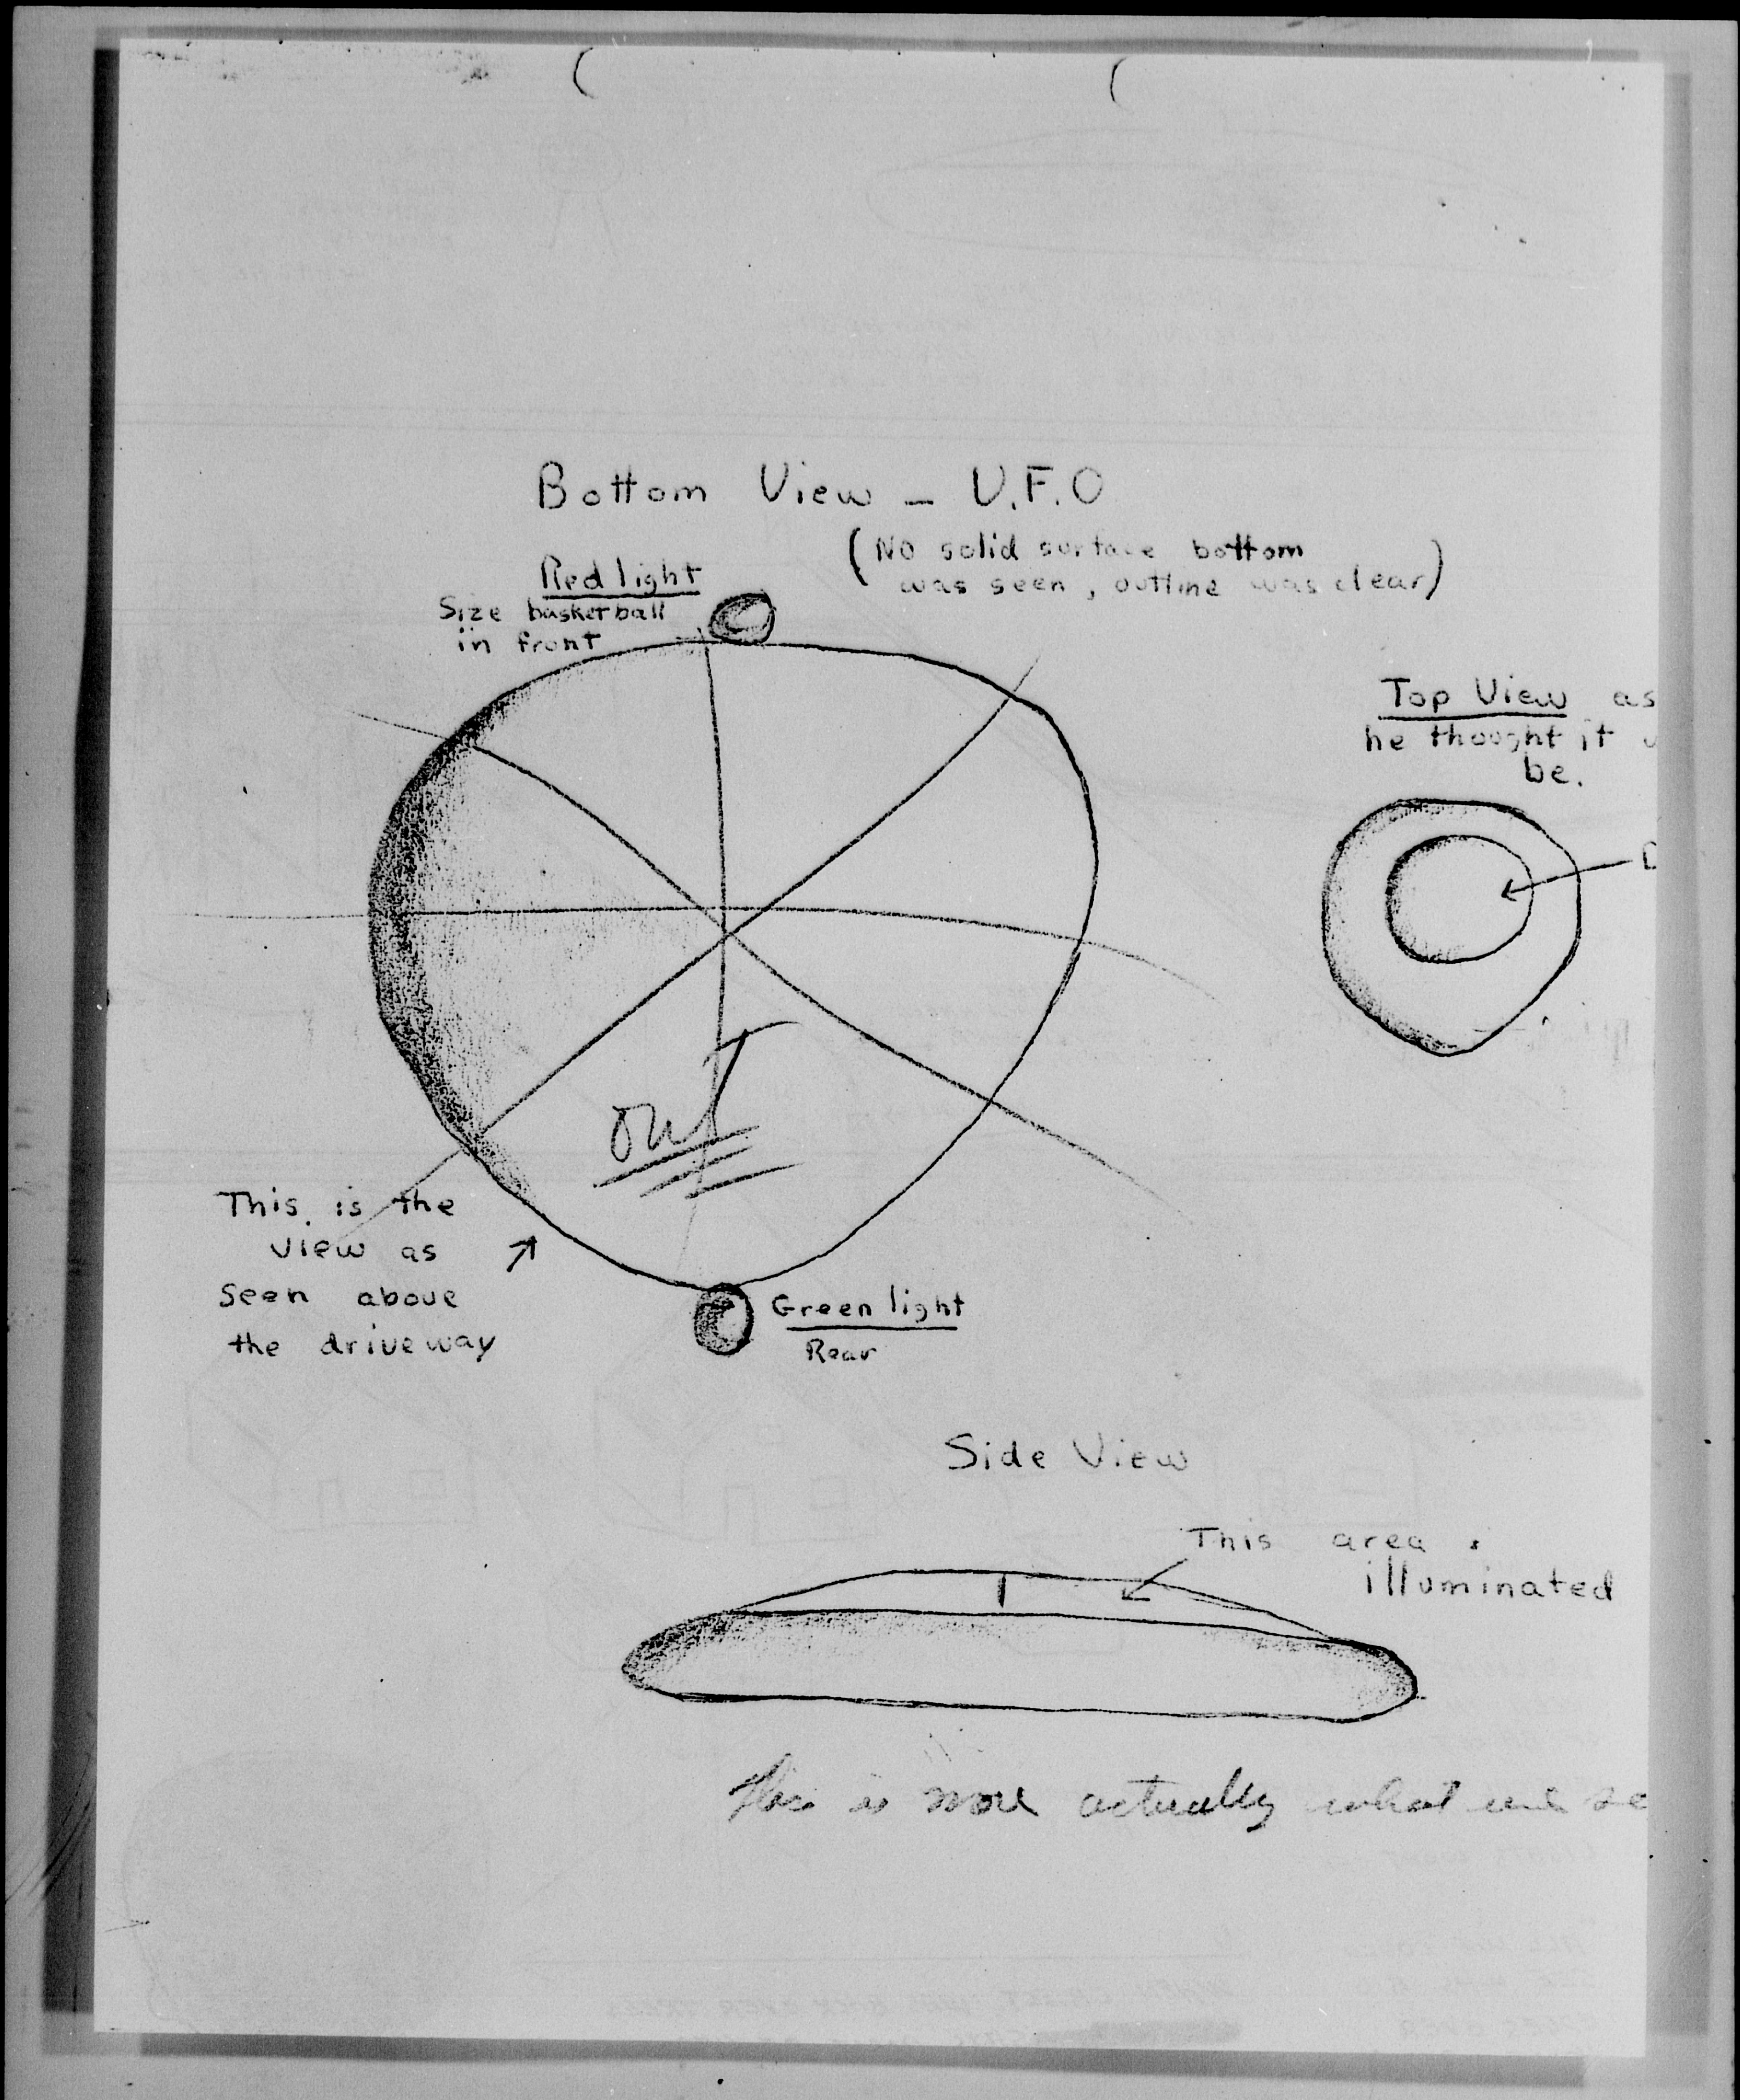 Bottom View - U.F.O
(No solid surface bottom
was seen, outline was clear)
Red light
Size basketball
in front
Top View as
he thought it
be.
out
This is the
View as
Seen above
the driveway
Green light
Rear
Side View
This area
illuminated
This is more actually what